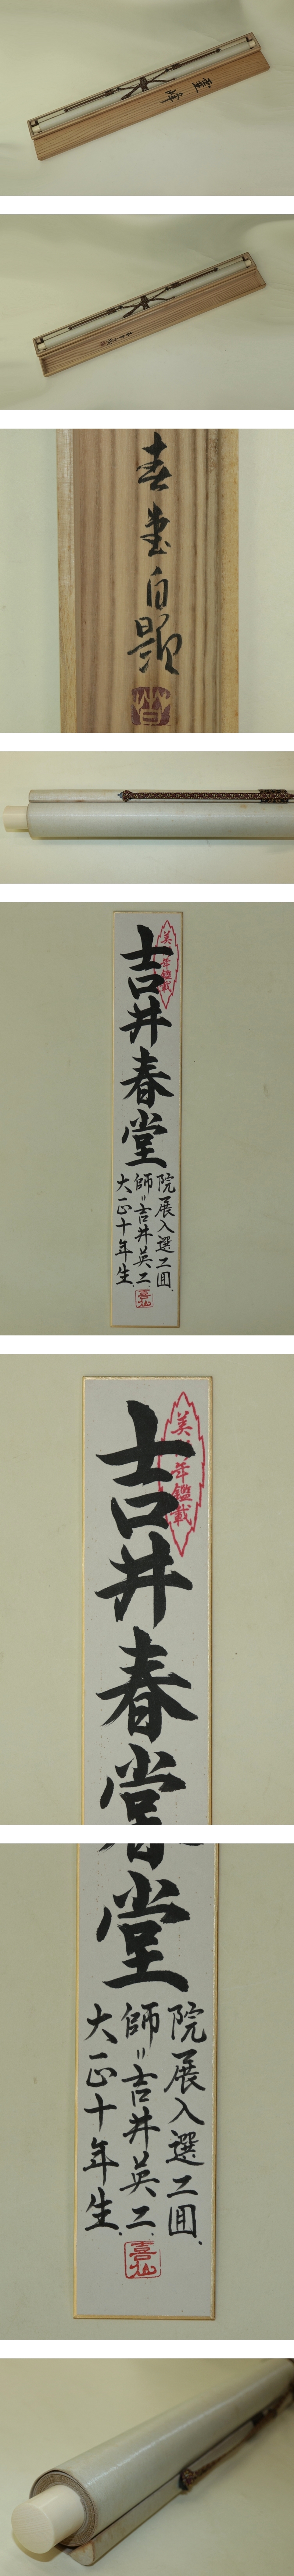 霊峰
春堂自題
美術年鑑載
吉井春堂
院展入選二回.
師〃吉井英二.
大正十年生.
喜仙
美術年鑑載
吉井春堂
堂
院展入選二回.
師〃吉井英二.
大正十年生.
喜仙